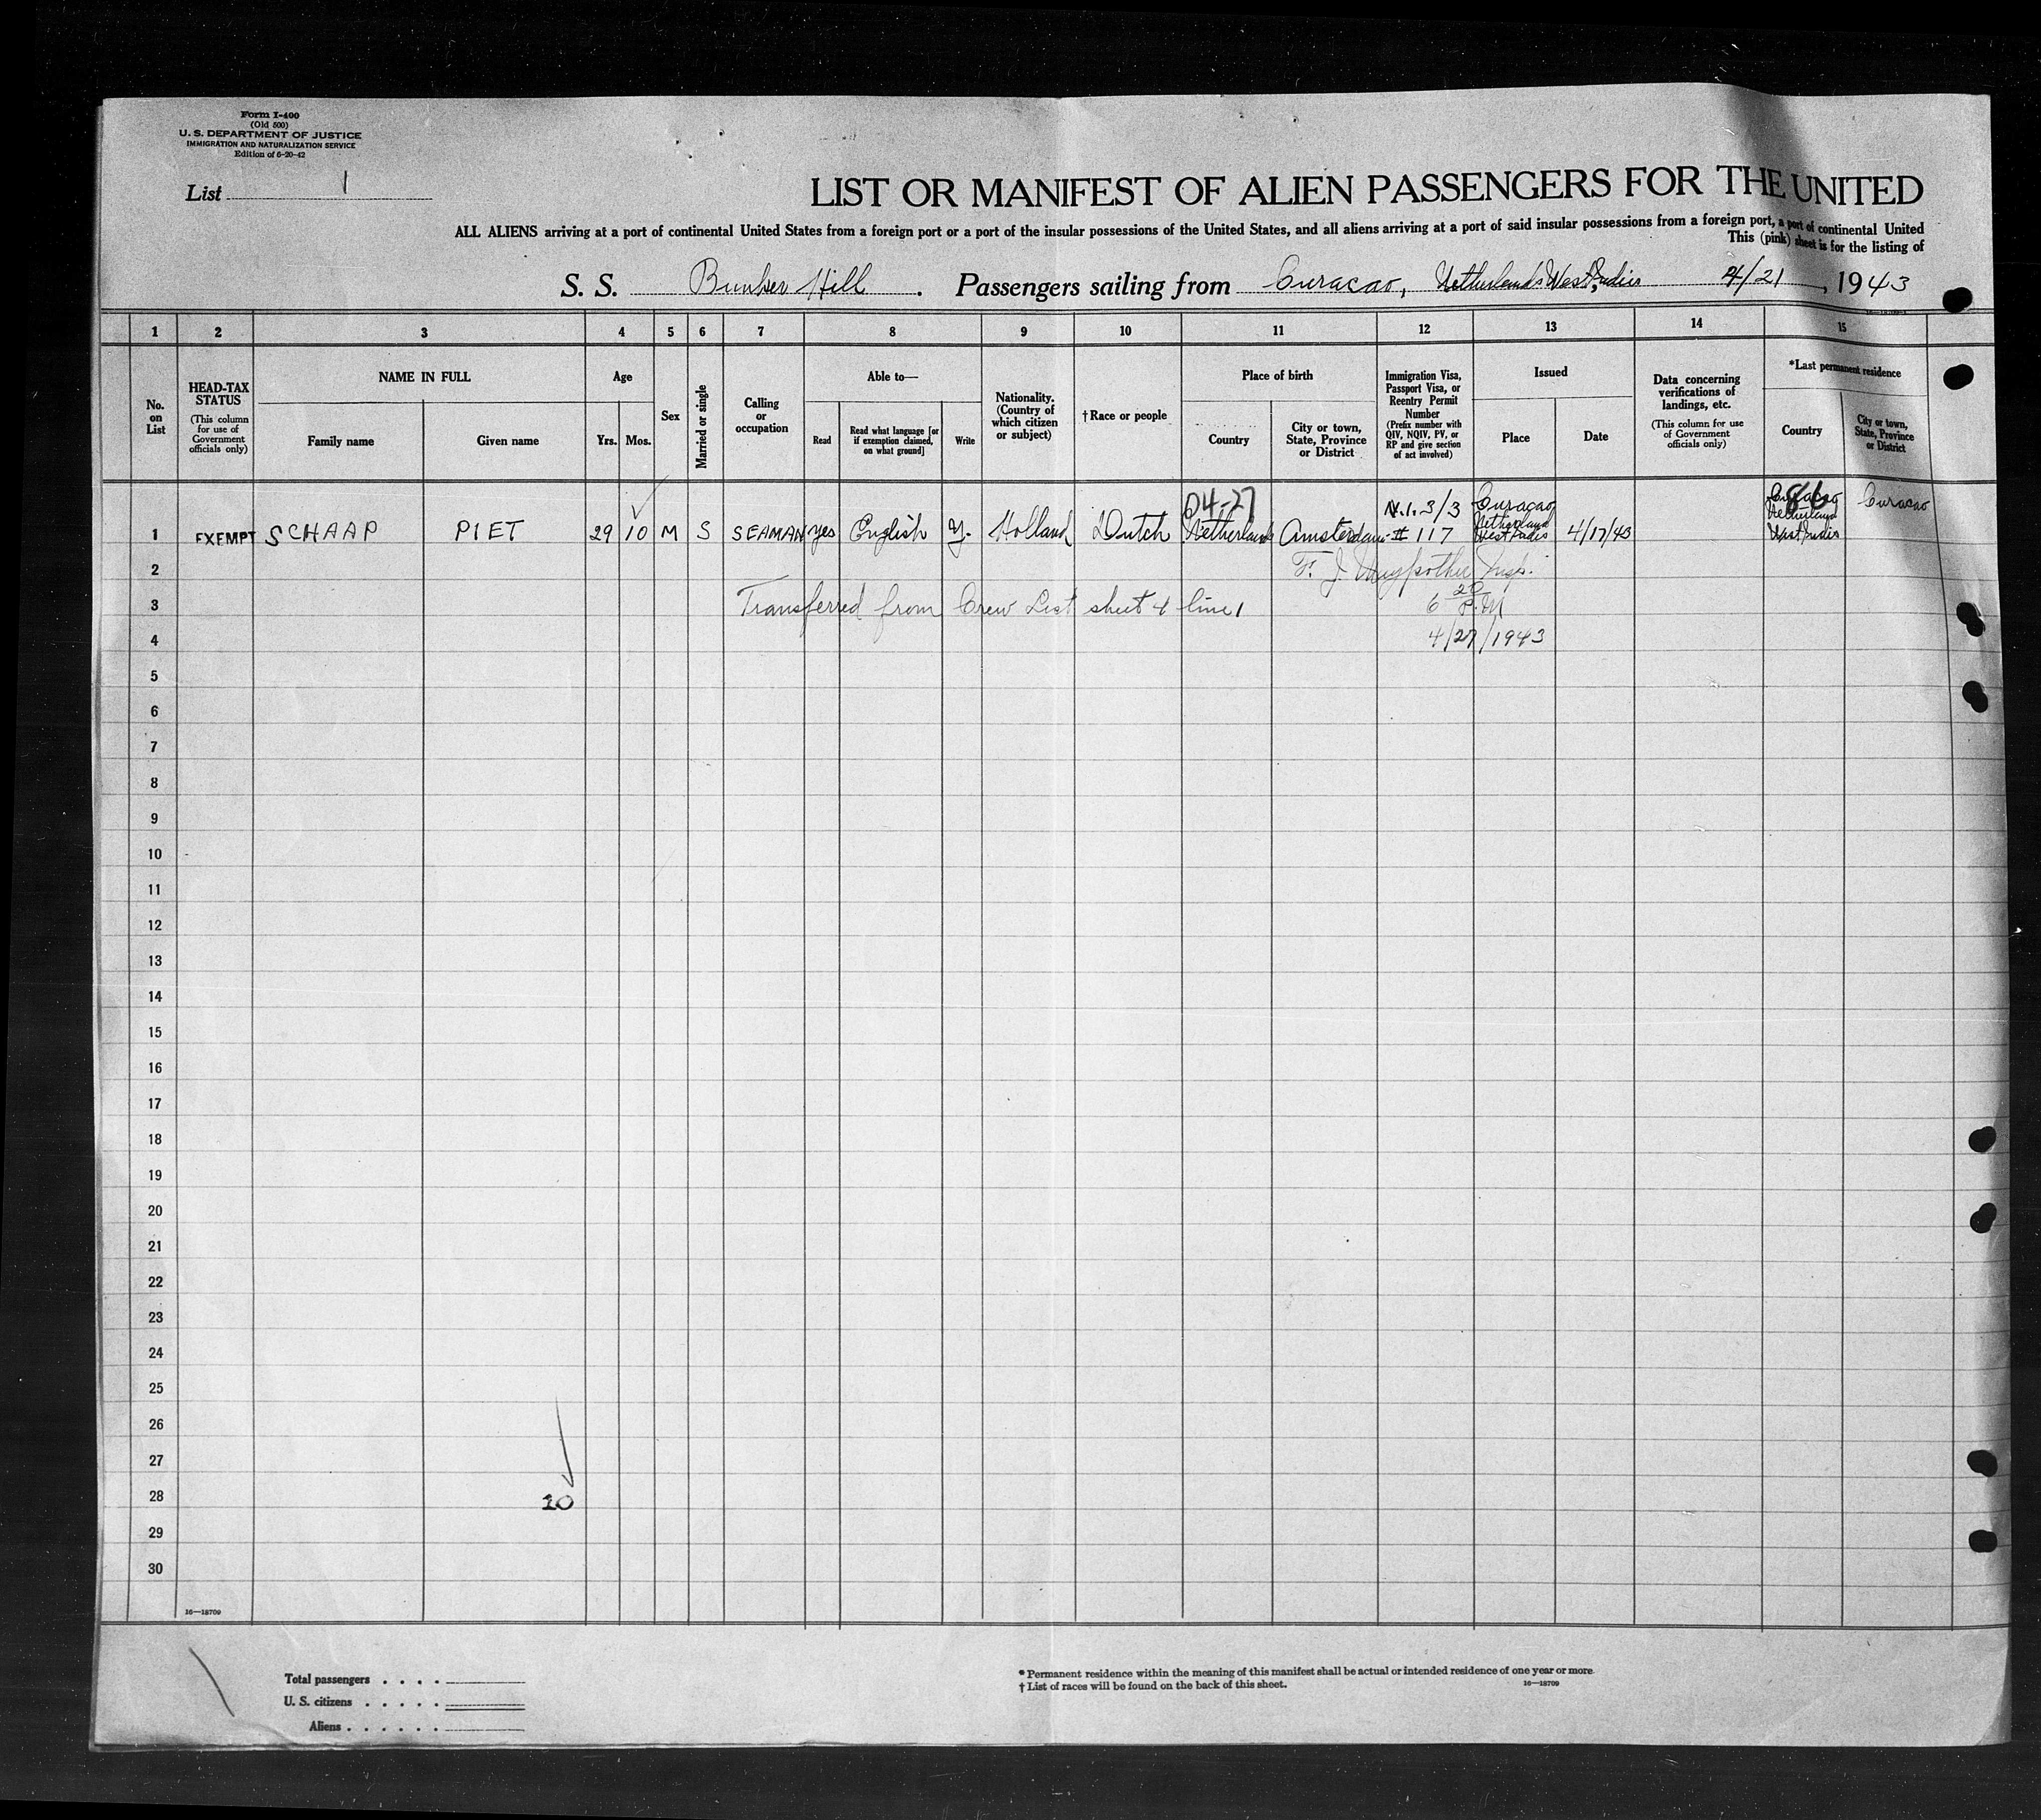 Form I-400
(Old 500)
U. S. DEPARTMENT OF JUSTICE
IMMIGRATION AND NATURALIZATION SERVICE
Edition of 6-20-42
List 1
LIST OR MANIFEST OF ALIEN PASSENGERS FOR THE UNITED
ALL ALIENS arriving at a port of continental United States from a foreign port or a port of the insular possessions of the United States, and all aliens arriving at a port of said insular possessions from a foreign port, a port of continental United
This (pink) sheet is for the listing of
S. S. Bunker Hill. Passengers sailing from Curacao, Netherlands West Indies 4/21, 1943
1 2 3 4 5 6 7 8 9 10 11 12 13 14 15
No. on List
HEAD-TAX STATUS
(This column for use of Government officials only)
NAME IN FULL
Family name
Given name
Age
Yrs.
Mos.
Sex
Married or single
Calling or occupation
Able to—
Read
Read what language [or if exemption claimed, on what ground]
Write
Nationality. (Country of which citizen or subject)
†Race or people
Place of birth
Country
City or town, State, Province or District
Immigration Visa, Passport Visa, or Reentry Permit Number
(Prefix number with QIV, NQIV, PV, or RP and give section of act involved)
Issued
Place
Date
Data concerning verifications of landings, etc.
(This column for use of Government officials only)
*Last permanent residence
Country
City or town, State, Province or District
04-27
1 EXEMPT SCHAAP PIET 29 10 M S SEAMAN yes English y. Holland Dutch Netherlands Amsterdam N.I. 3/3 # 117 Curacao Netherland West Indies 4/17/43 Curacao Netherland West Indies Curacao
2 F. J.
3 Transferred from Crew List sheet 4 line 1 6 20 P.M
4 4/27/1943
5
6
7
8
9
10
11
12
13
14
15
16
17
18
19
20
21
22
23
24
25
26
27
28 10
29
30
16—18709
Total passengers . . . .
U. S. citizens . . . . .
Aliens . . . . . .
* Permanent residence within the meaning of this manifest shall be actual or intended residence of one year or more.
† List of races will be found on the back of this sheet.
16—18709